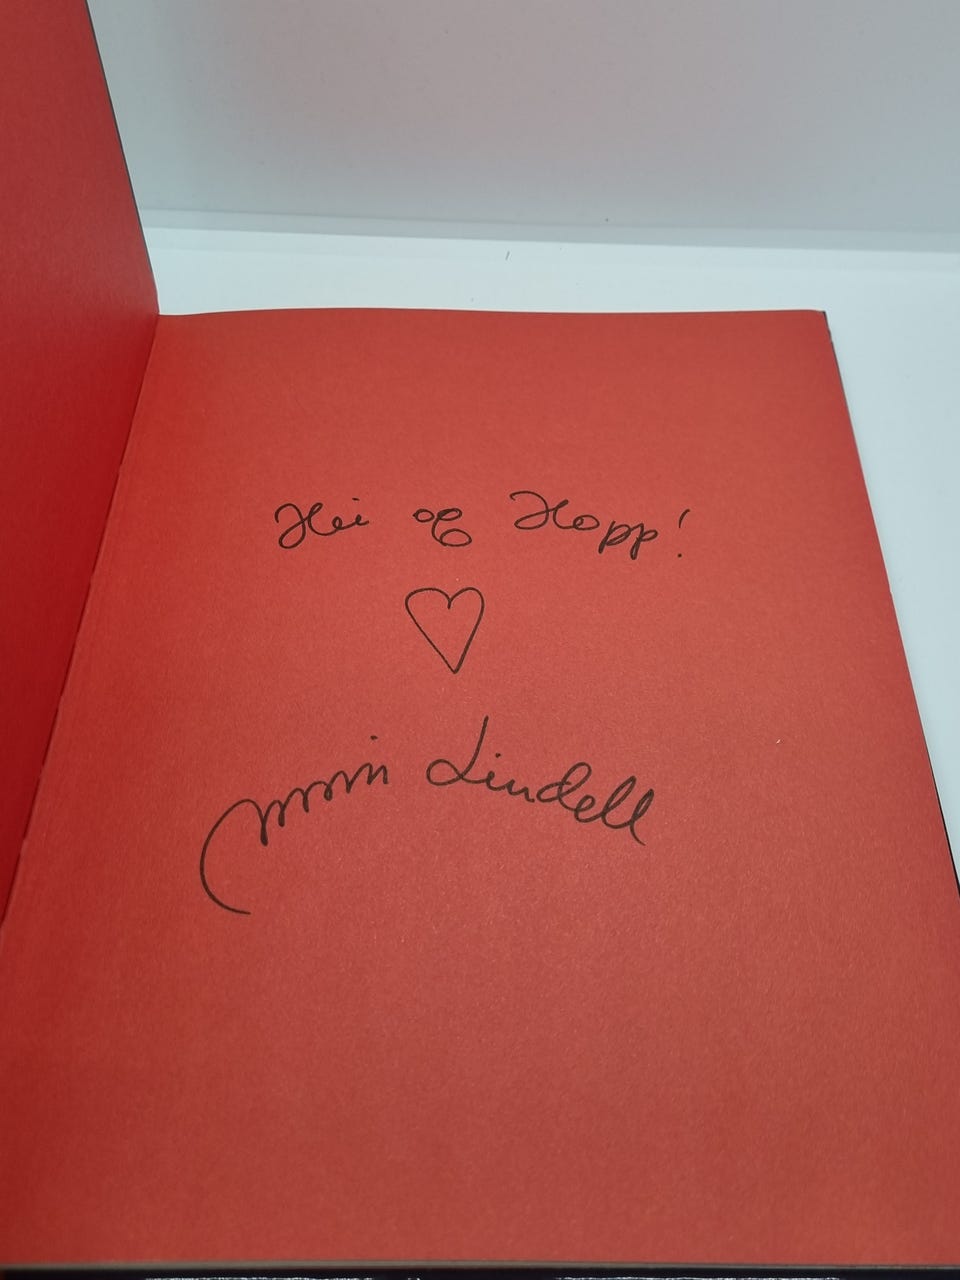 Hei og Hopp!
Mimi Lindell